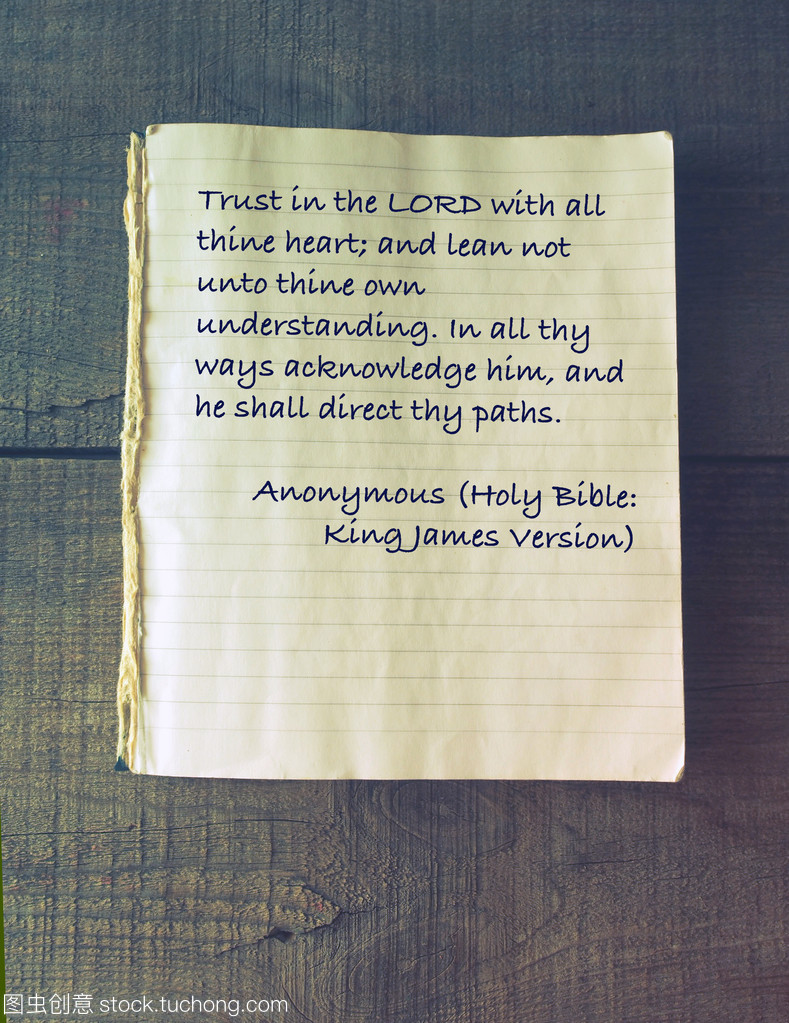 Trust in the LORD with all
thine heart; and lean not
unto thine own
understanding. In all thy
ways acknowledge him, and
he shall direct thy paths.
Anonymous (Holy Bible:
King James Version)
图虫创意 stock.tuchong.com